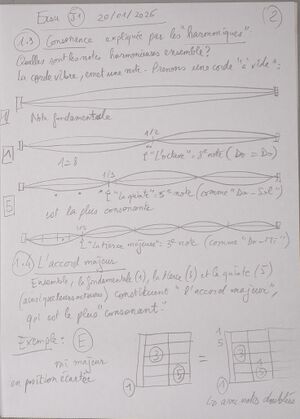 Exau J1 20/01/2026 2
1.3 Consonance expliquée par les "harmoniques".
Quelles sont les notes harmonieuses ensemble?
La corde vibre, émet une note. Prenons une corde "à vide":
1
Note fondamentale
1/2
1 1=8 "L'octave": 8e note (Do = Do)
1/3
"La quinte": 5e note (comme "Do - Sol")
5 est la plus consonante
"La tierce majeure": 3e note (comme "Do - Mi")
1.4 L'accord majeur
Ensemble, la fondamentale (1), la tierce (3) et la quinte (5)
constituent "l'accord majeur",
qui est le plus "consonant".
Exemple: E
mi majeur
en position écartée
1 3 5 = 1 5 3 1 5 1
avec notes doublées